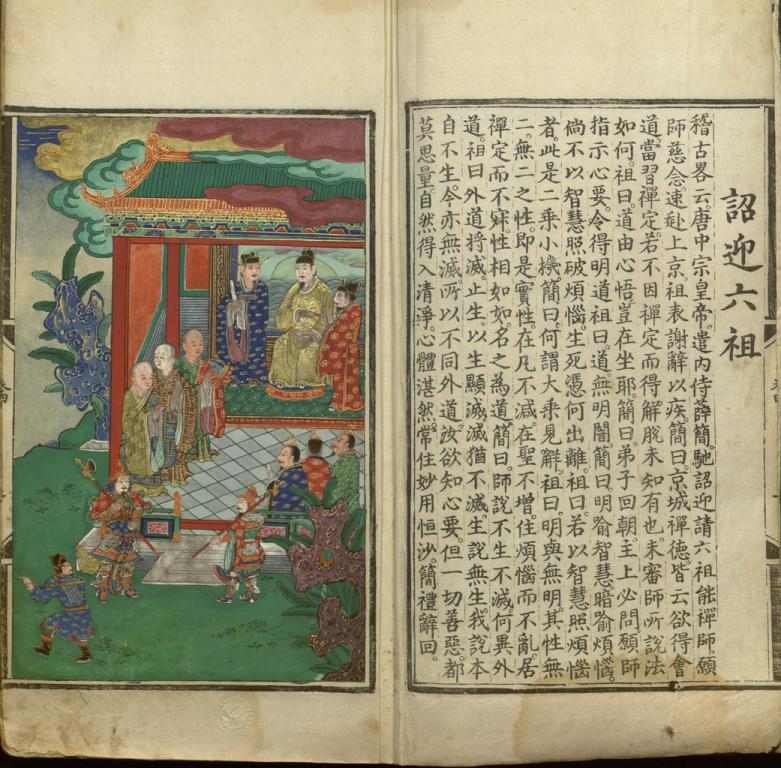 詔迎六祖
稽古畧云。唐中宗皇帝。遣内侍薛簡。馳詔迎請六祖能禪師。願
師慈念。速赴上京。祖表謝。辭以疾。簡曰。京城禪德。皆云欲得會
道。當習禪定。若不因禪定而得解脫。未知有也。未審師所說法
如何。祖曰。道由心悟。豈在坐耶。簡曰。弟子回朝。主上必問。願師
指示心要。令得明道。祖曰。道無明闇。簡曰。明喻智慧。暗喻煩惱。
倘不以智慧照破煩惱。生死憑何出離。祖曰。若以智慧照煩惱
者。此是二乘小機。簡曰。何謂大乘見解。祖曰。明與無明。其性無
二。無二之性。即是實性。在凡不减。在聖不增。住煩惱而不亂。居
禪定而不寂。性相如如。名之為道。簡曰。師說不生不滅。何異外
道。祖曰。外道將滅止生。以生顯滅。滅猶不滅。生說無生。我說本
自不生。今亦無滅。所以不同外道。汝欲知心要。但一切善惡。都
莫思量。自然得入清淨。心體湛然。常住妙用恒沙。簡禮辭回。